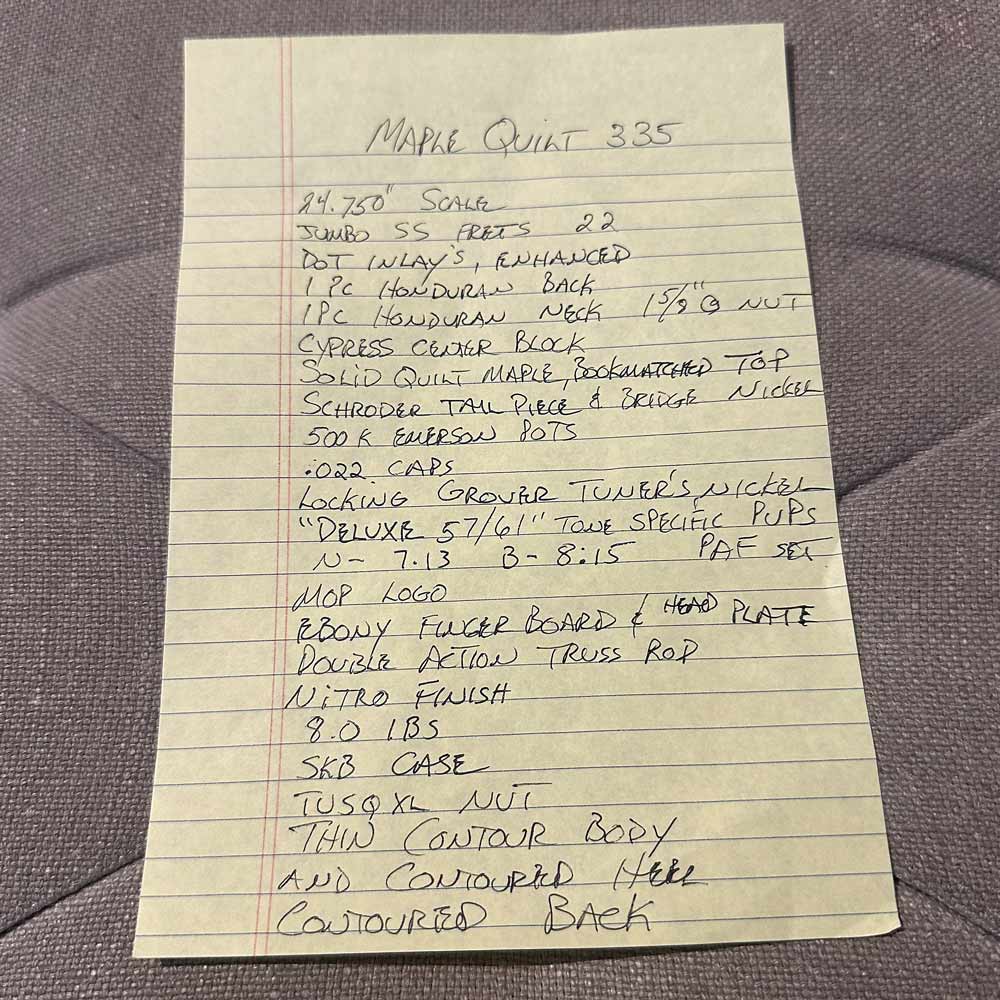 MAPLE QUILT 335
24.750" SCALE
JUMBO SS FRETS 22
DOT INLAY'S, ENHANCED
1 PC HONDURAN BACK
1PC HONDURAN NECK 1 5/8" @ NUT
CYPRESS CENTER BLOCK
SOLID QUILT MAPLE, BOOKMATCHED TOP
SCHRODER TAIL PIECE & BRIDGE NICKEL
500 K EMERSON POTS
.022 CAPS
LOCKING GROVER TUNER'S, NICKEL
"DELUXE 57/61" TONE SPECIFIC PUPS
N- 7.13 B- 8:15 PAF SET
MOP LOGO
EBONY FINGER BOARD & HEAD PLATE
DOUBLE ACTION TRUSS ROD
NITRO FINISH
8.0 LBS
SKB CASE
TUSQ XL NUT
THIN CONTOUR BODY
AND CONTOURED HEEL
CONTOURED BACK